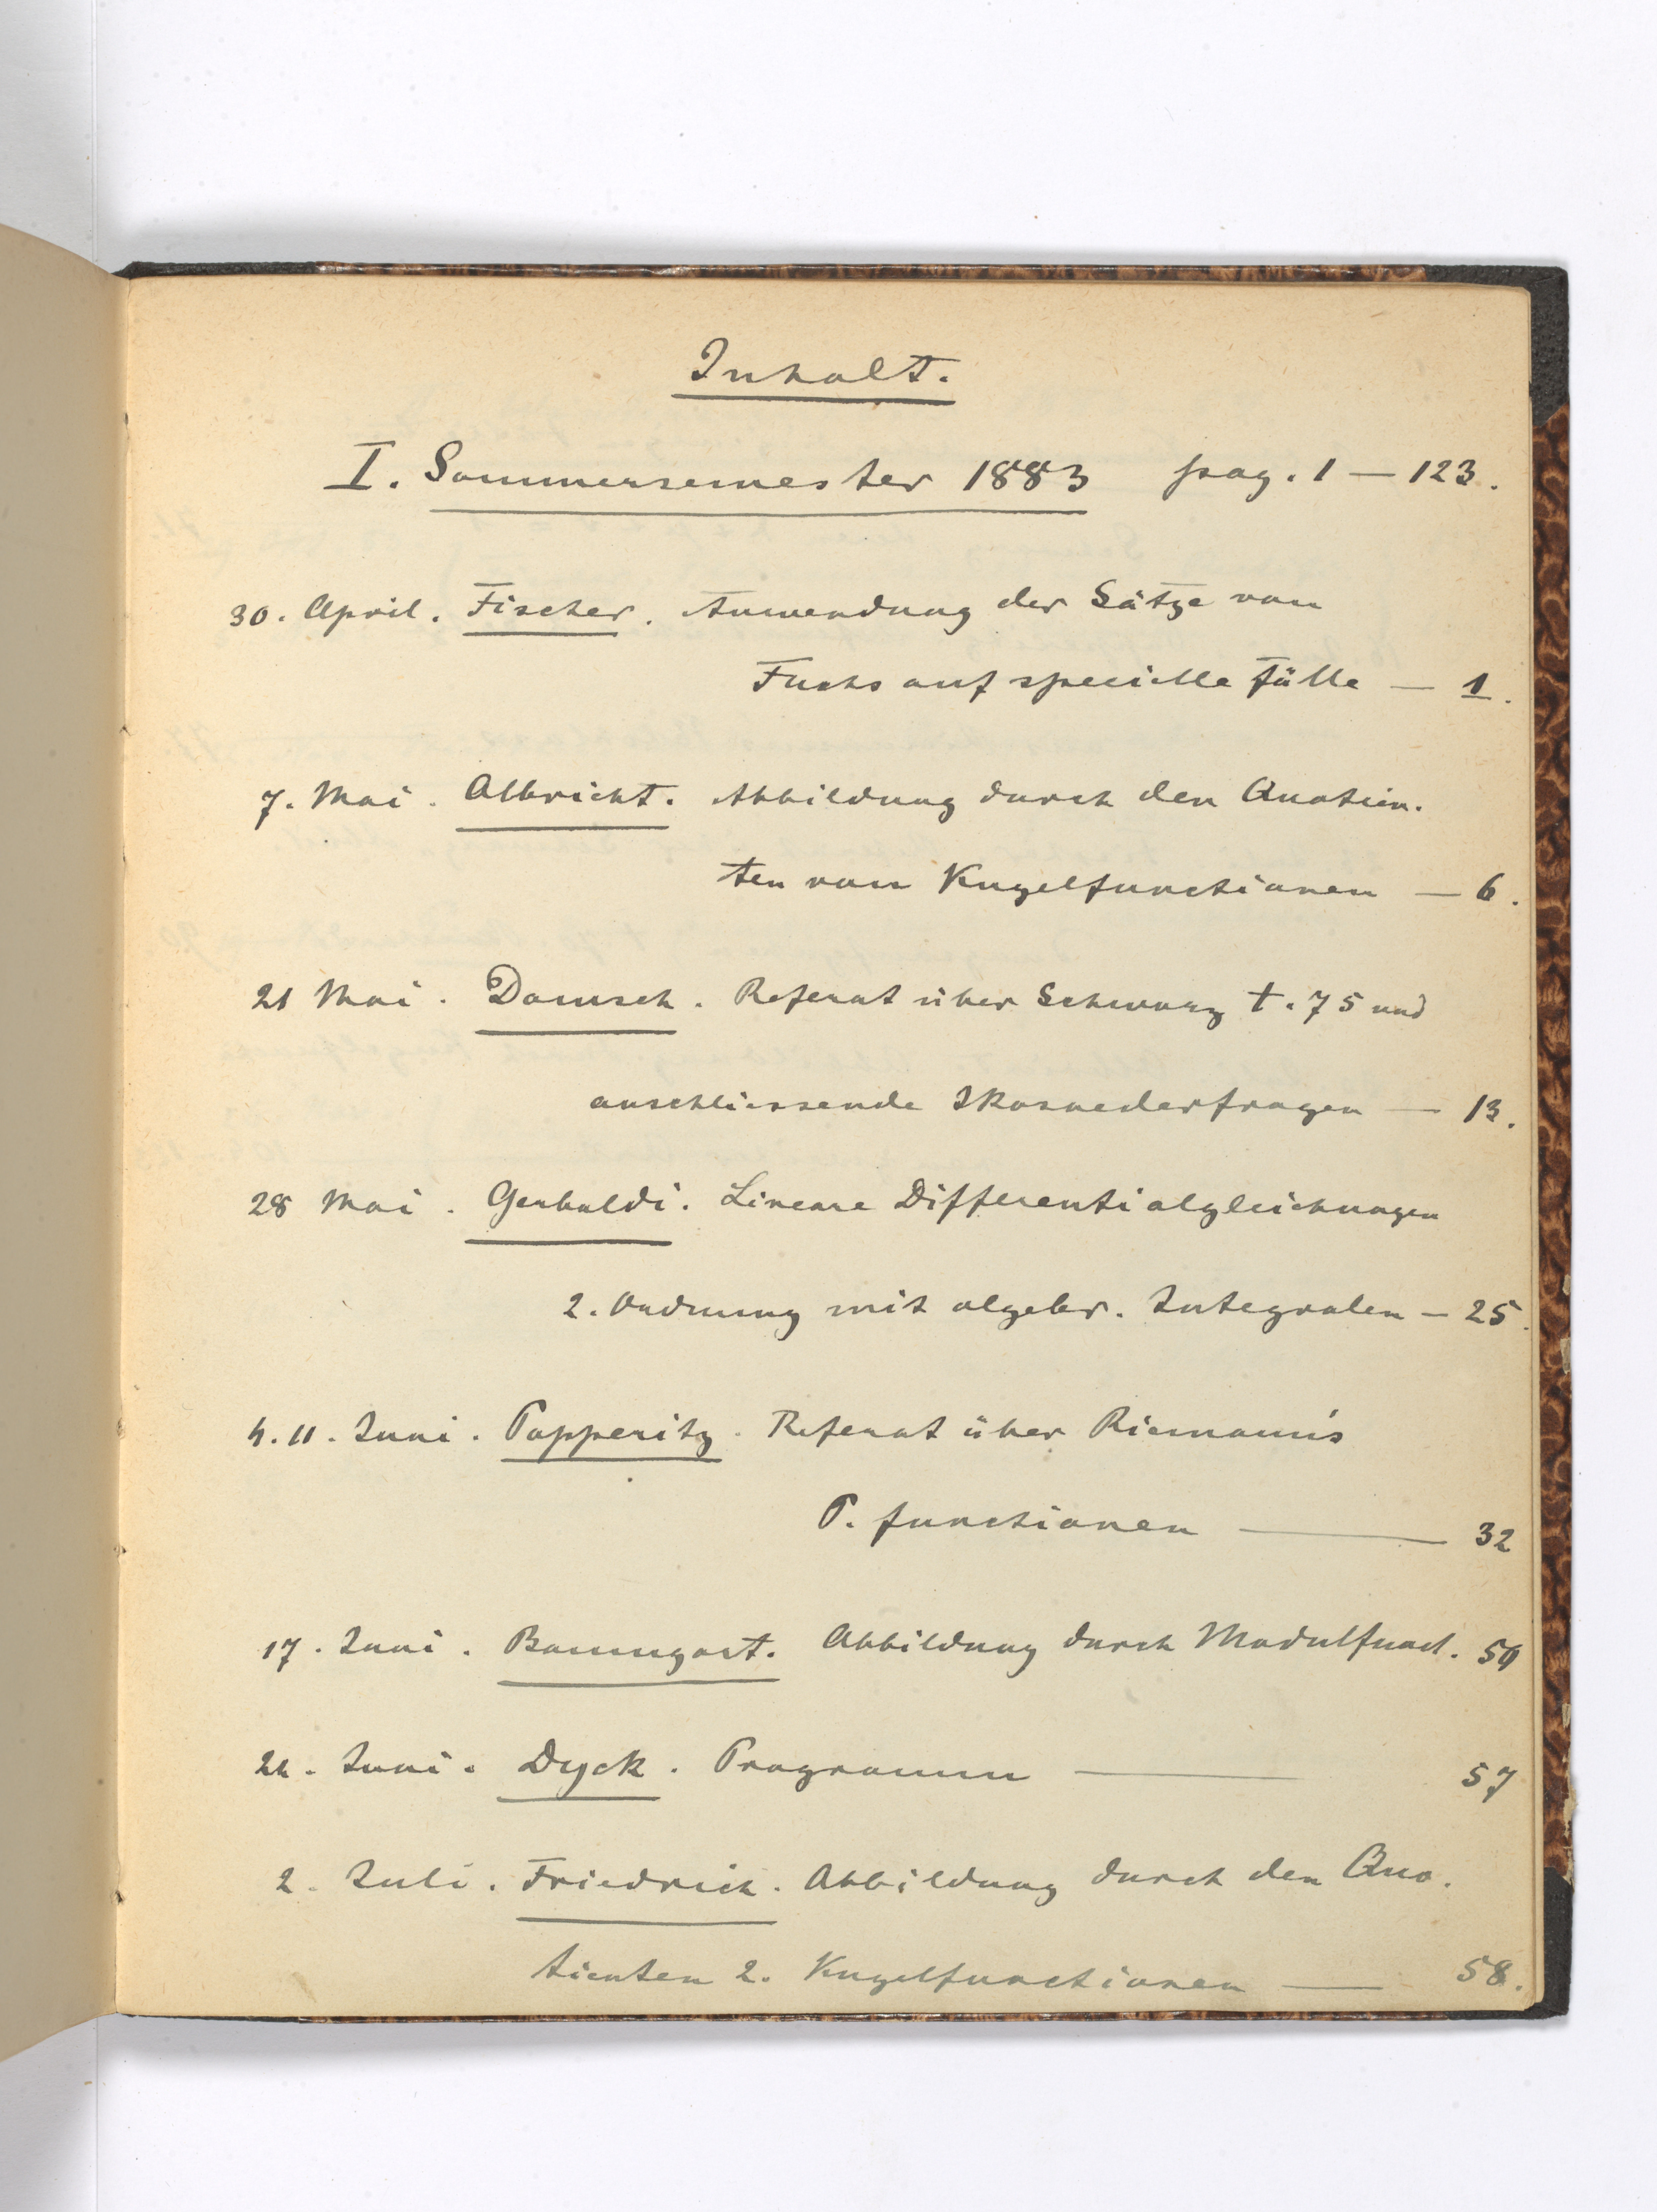 Inhalt.
I. Sommersemester 1883 pag. 1 — 123.
30. April. Fischer. Anwendung der Sätze von
Fuchs auf specielle Fälle — 1.
7. Mai. Olbricht. Abbildung durch den Quotien-
ten von Kugelfunctionen — 6.
21 Mai. Domsch. Referat über Schwarz t. 75 und
anschliessende Ikosaederfragen — 13.
28 Mai. Gerbaldi. Lineare Differentialgleichungen
2. Ordnung mit algebr. Integralen — 25.
4. 11. Juni. Papperitz. Referat über Riemann's
P. functionen — 32
17. Juni. Baumgart. Abbildung durch Modulfunct. 50
24. Juni. Dyck. Programm — 57
2. Juli. Friedrich. Abbildung durch den Quo-
tienten 2. Kugelfunctionen — 58.